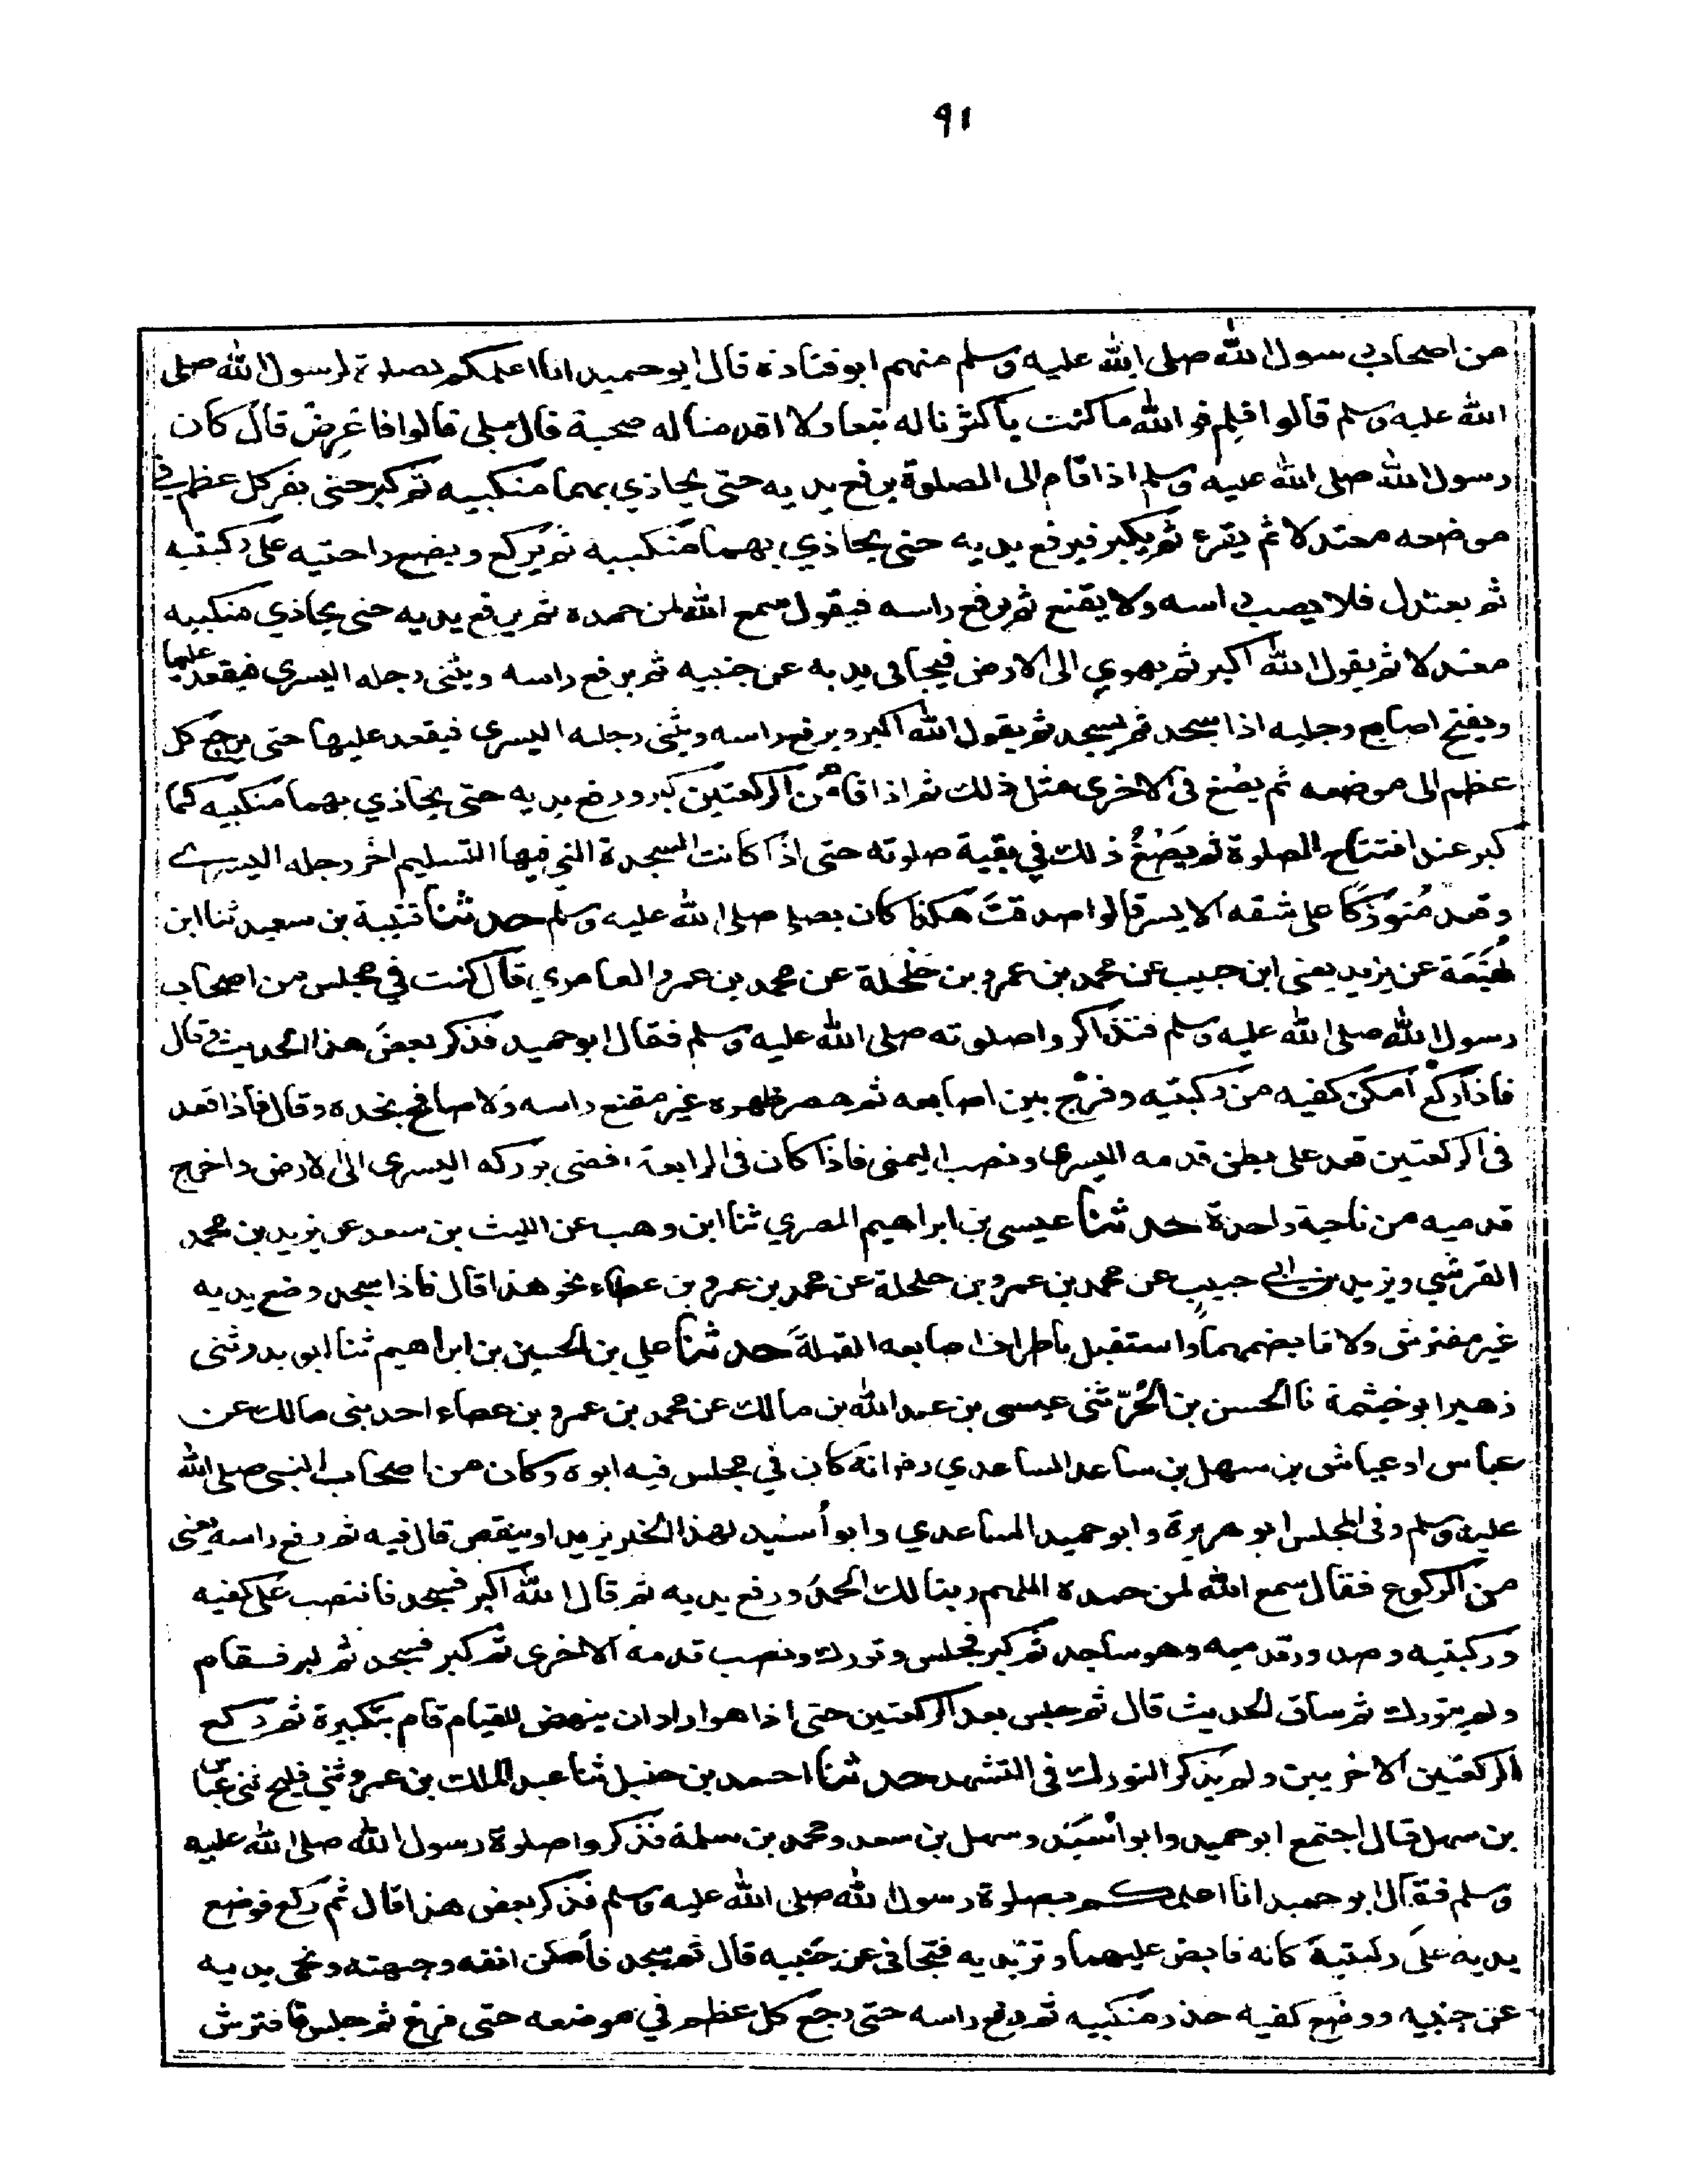 ٩١
من اصحاب رسول الله صلى الله عليه وسلم منهم ابو قتادة قال ابو حميد انا اعلمكم بصلوة رسول الله صلى
الله عليه وسلم قالوا فلم فوالله ما كنت باكثرنا له تبعا ولا اقدمنا له صحبة قال بلى قالوا فاعرض قال كان
رسول الله صلى الله عليه وسلم اذا قام الى الصلوة يرفع يديه حتى يحاذي بهما منكبيه ثم كبر حتى يقر كل عظم في
موضعه معتدلا ثم يقرء ثم يكبر فيرفع يديه حتى يحاذي بهما منكبيه ثم يركع ويضع راحتيه على ركبتيه
ثم يعتدل فلا يصب راسه ولا يقنع ثم يرفع راسه فيقول سمع الله لمن حمده ثم يرفع يديه حتى يحاذي منكبيه
معتدلا ثم يقول الله اكبر ثم يهوي الى الارض فيجافى يديه عن جنبيه ثم يرفع راسه ويثنى رجله اليسرى فيقعد عليها
ويفتح اصابع رجليه اذا سجد ثم يسجد ثم يقول الله اكبر ويرفع راسه ويثنى رجله اليسرى فيقعد عليها حتى يرجع كل
عظم الى موضعه ثم يصنع فى الاخرى مثل ذلك ثم اذا قام من الركعتين كبر ورفع يديه حتى يحاذي بهما منكبيه كما
كبر عند افتتاح الصلوة ثم يصنع ذلك في بقية صلوته حتى اذا كانت السجدة التي فيها التسليم اخر رجله اليسرى
وقعد متوركا على شقه الايسر قالوا صدقت هكذا كان يصلي صلى الله عليه وسلم حدثنا قتيبة بن سعيد ثنا ابن
لهيعة عن يزيد يعنى ابن حبيب عن محمد بن عمرو بن حلحلة عن محمد بن عمرو العامري قال كنت في مجلس من اصحاب
رسول الله صلى الله عليه وسلم فتذاكروا صلوته صلى الله عليه وسلم فقال ابو حميد فذكر بعض هذا الحديث وقال
فاذا ركع امكن كفيه من ركبتيه وفرج بين اصابعه ثم هصر ظهره غير مقنع راسه ولا صافح بخده وقال فاذا قعد
فى الركعتين قعد على بطن قدمه اليسرى ونصب اليمنى فاذا كان فى الرابعة افضى بوركه اليسرى الى الارض واخرج
قدميه من ناحية واحدة حدثنا عيسى بن ابراهيم المصري ثنا ابن وهب عن الليث بن سعد عن يزيد بن محمد
القرشي ويزيد بن ابي حبيب عن محمد بن عمرو بن حلحلة عن محمد بن عمرو بن عطاء نحو هذا قال فاذا سجد وضع يديه
غير مفترش ولا قابضهما واستقبل باطراف اصابعه القبلة حدثنا علي بن الحسين بن ابراهيم ثنا ابو بدر ثنى
زهير ابو خيثمة نا الحسن بن الحر ثنى عيسى بن عبد الله بن مالك عن محمد بن عمرو بن عطاء احد بنى مالك عن
عباس او عياش بن سهل بن ساعد الساعدي انه كان في مجلس فيه ابوه وكان من اصحاب النبي صلى الله
عليه وسلم وفى المجلس ابو هريرة وابو حميد الساعدي وابو أسيد بهذا الخبر يزيد او ينقص قال فيه ثم رفع راسه يعنى
من الركوع فقال سمع الله لمن حمده اللهم ربنا لك الحمد ورفع يديه ثم قال الله اكبر فسجد فانتصب على كفيه
وركبتيه وصدور قدميه وهو ساجد ثم كبر فجلس وتورك ونصب قدمه الاخرى ثم كبر فسجد ثم كبر فقام
ولم يتورك ثم ساق الحديث قال ثم جلس بعد الركعتين حتى اذا هو اراد ان ينهض للقيام قام بتكبيرة ثم ركع
الركعتين الاخريين ولم يذكر التورك فى التشهد حدثنا احمد بن حنبل ثنا عبد الملك بن عمرو ثني فليح ثنى عباس
بن سهل قال اجتمع ابو حميد وابو أسيد وسهل بن سعد ومحمد بن سلمة فذكروا صلوة رسول الله صلى الله عليه
وسلم فقال ابو حميد انا اعلمكم بصلوة رسول الله صلى الله عليه وسلم فذكر بعض هذا قال ثم ركع فوضع
يديه على ركبتيه كانه قابض عليهما وتر يديه فتجافى عن جنبيه قال ثم سجد فامكن انفه وجبهته ونحى يديه
عن جنبيه ووضع كفيه حذو منكبيه ثم رفع راسه حتى رجع كل عظم في موضعه حتى فرغ ثم جلس فافترش